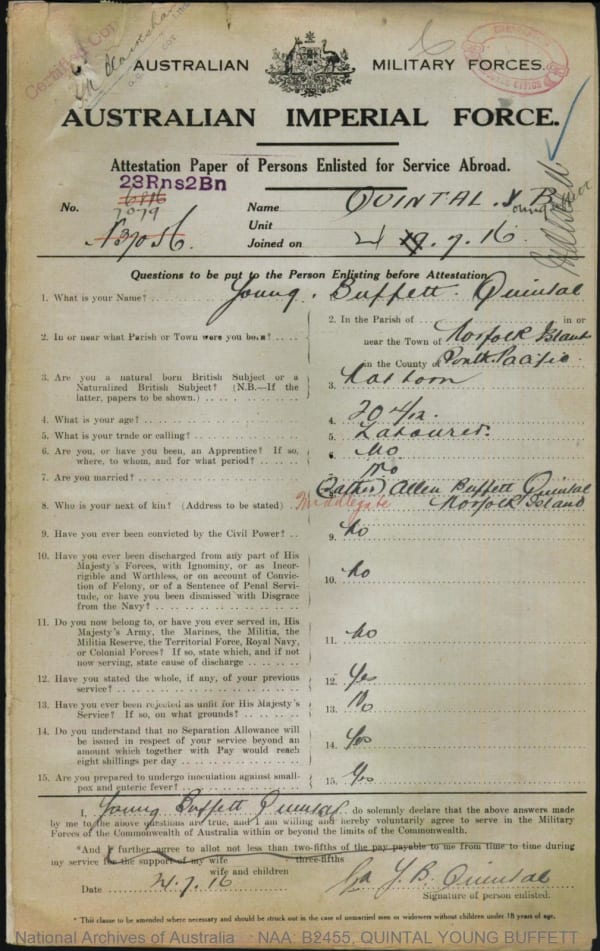 Certified Copy
AUSTRALIAN MILITARY FORCES.
AUSTRALIAN IMPERIAL FORCE.
Attestation Paper of Persons Enlisted for Service Abroad.
23Rns2Bn
No. 7079 Name QUINTAL. Y. B.
Young
Unit
N37056. Joined on 24.7.16
Questions to be put to the Person Enlisting before Attestation
1. What is your Name? Young. Buffett. Quintal
2. In or near what Parish or Town were you born? 2. In the Parish of in or
near the Town of Norfolk Island
in the County of South Pacific.
3. Are you a natural born British Subject or a
Naturalized British Subject? (N.B.—If the
latter, papers to be shown.) 3. Nat born
4. What is your age? 4. 20 4/12.
5. What is your trade or calling? 5. Labourer.
6. Are you, or have you been, an Apprentice? If so,
where, to whom, and for what period? 6. No
7. Are you married? No
(Father) Allen Buffett Quintal
8. Who is your next of kin? (Address to be stated) Middlegate Norfolk Island
9. Have you ever been convicted by the Civil Power? 9. No
10. Have you ever been discharged from any part of His
Majesty's Forces, with Ignominy, or as Incor-
rigible and Worthless, or on account of Convic-
tion of Felony, or of a Sentence of Penal Servi-
tude, or have you been dismissed with Disgrace
from the Navy? 10. No
11. Do you now belong to, or have you ever served in, His
Majesty's Army, the Marines, the Militia, the
Militia Reserve, the Territorial Force, Royal Navy,
or Colonial Forces? If so, state which, and if not
now serving, state cause of discharge 11. No
12. Have you stated the whole, if any, of your previous
service? 12. Yes
13. Have you ever been rejected as unfit for His Majesty's
Service? If so, on what grounds? 13. No
14. Do you understand that no Separation Allowance will
be issued in respect of your service beyond an
amount which together with Pay would reach
eight shillings per day 14. Yes
15. Are you prepared to undergo inoculation against small-
pox and enteric fever? 15. Yes
I, Young Buffett Quintal do solemnly declare that the above answers made
by me to the above questions are true, and I am willing and hereby voluntarily agree to serve in the Military
Forces of the Commonwealth of Australia within or beyond the limits of the Commonwealth.
*And I further agree to allot not less than two-fifths of the pay payable to me from time to time during
three-fifths
my service for the support of my wife
wife and children
Date 24.7.16 Y. B. Quintal
Signature of person enlisted.
* This clause to be amended where necessary and should be struck out in the case of unmarried men or widowers without children under 18 years of age.
National Archives of Australia NAA: B2455, QUINTAL YOUNG BUFFETT